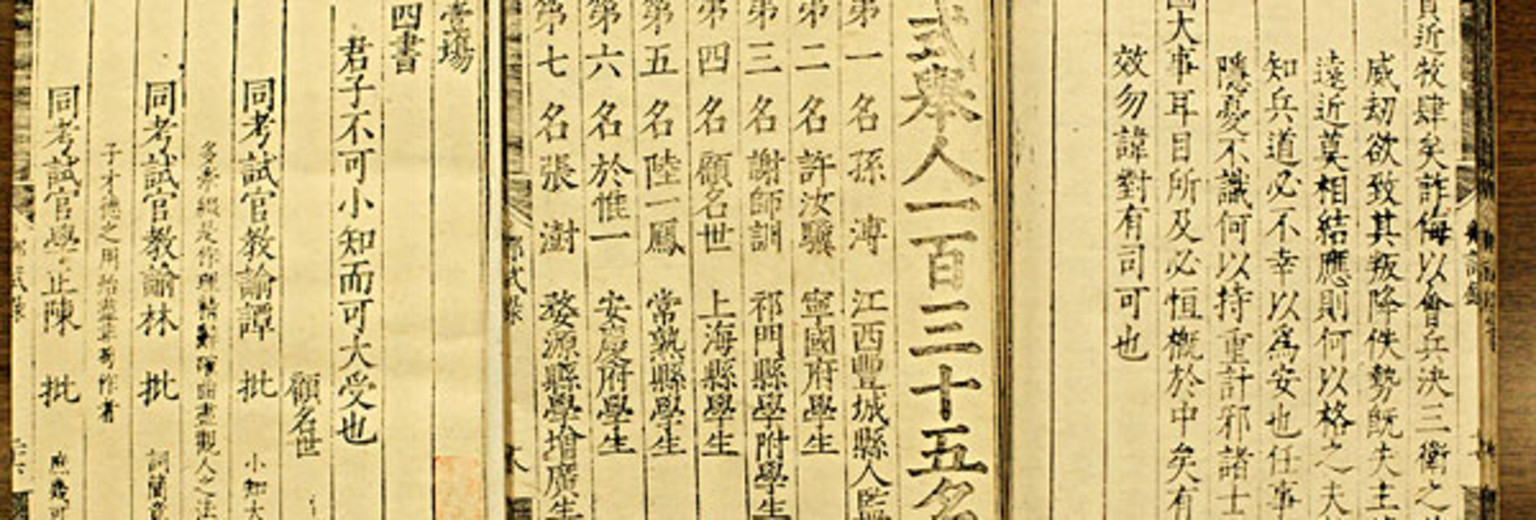 近牧肆矣詐侮以會兵決三衛之
威刼欲致其叛降佚勢既夫主
遠近莫相結應則何以格之夫
知兵道必不幸以爲安也任事
隱憂不識何以持重計邪諸士
大事耳目所及必恒概於中矣有
效勿諱對有司可也
式舉人一百三十五名
第一名孫溥 江西豐城縣人監
第二名許汝驥 寧國府學生
第三名謝師訓 祁門縣學附學生
第四名顧名世 上海縣學生
第五名陸一鳳 常熟縣學生
第六名於惟一 安慶府學生
第七名張澍 婺源縣學增廣生
壹場
四書
君子不可小知而可大受也
顧名世
同考試官教諭譚 批 小知大
觀人之法
同考試官教諭林 批 詞簡意
子才德之用
同考試官學正陳 批